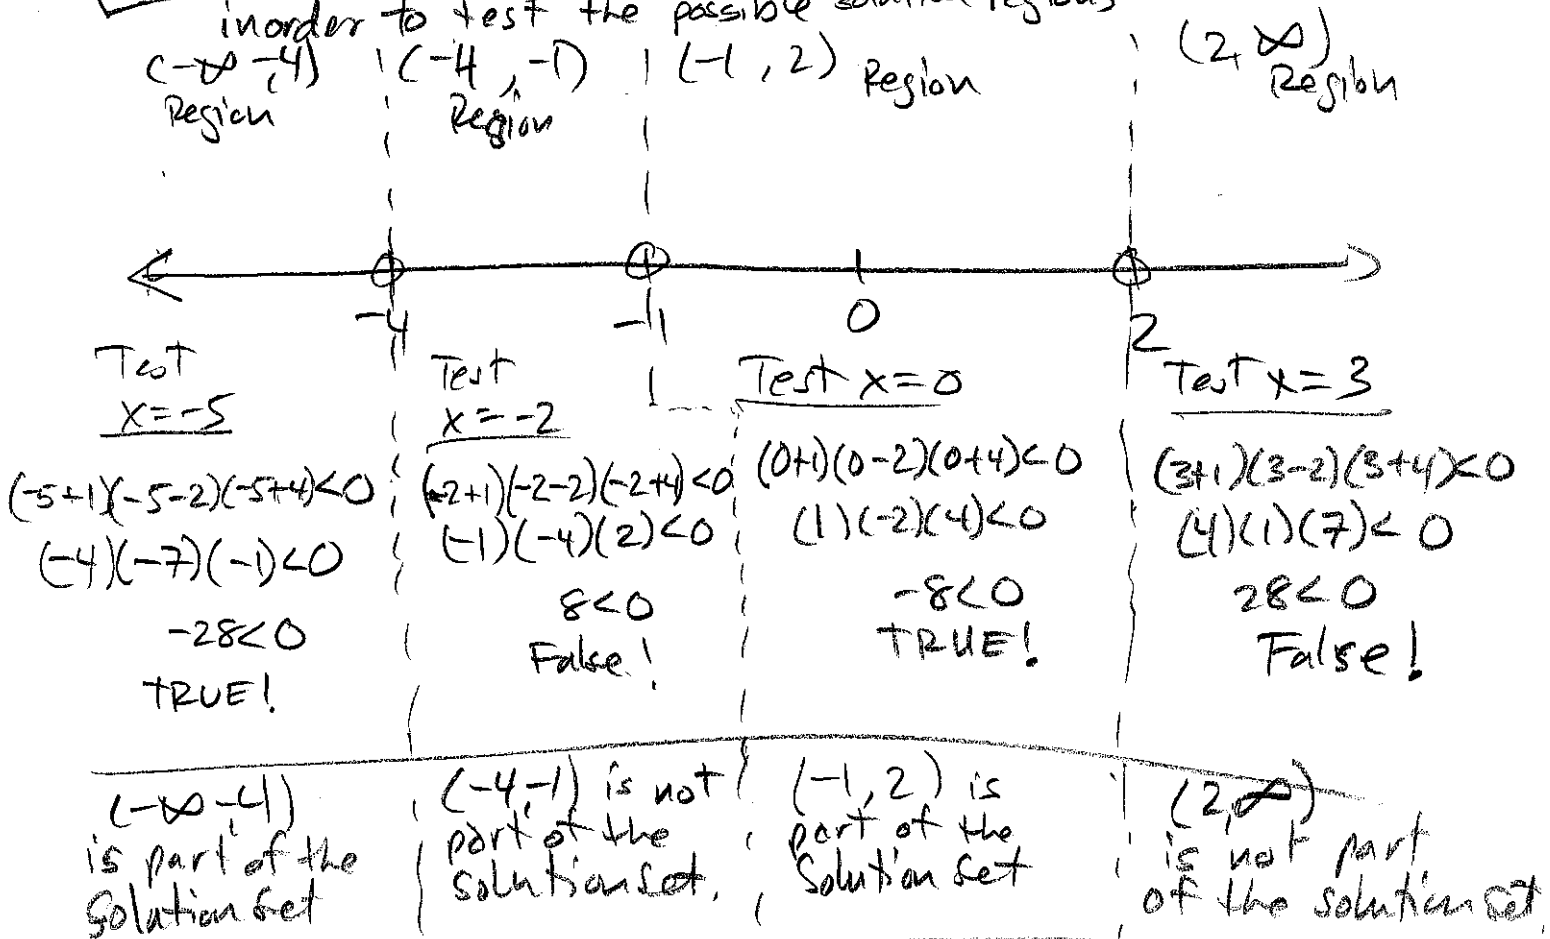 inorder to test the possible solution regions
(-∞,-4) (-4,-1) (-1,2) Region (2,∞)
Region Region Region
-4 -1 0 2
Test
x=-5
(-5+1)(-5-2)(-5+4)<0
(-4)(-7)(-1)<0
-28<0
TRUE!
(-∞,-4)
is part of the
Solution Set
Test
x=-2
(-2+1)(-2-2)(-2+4)<0
(-1)(-4)(2)<0
8<0
False!
(-4,-1) is not
part of the
solution set.
Test x=0
(0+1)(0-2)(0+4)<0
(1)(-2)(4)<0
-8<0
TRUE!
(-1,2) is
part of the
Solution Set
Test x=3
(3+1)(3-2)(3+4)<0
(4)(1)(7)<0
28<0
False!
(2,∞)
is not part
of the solution set.